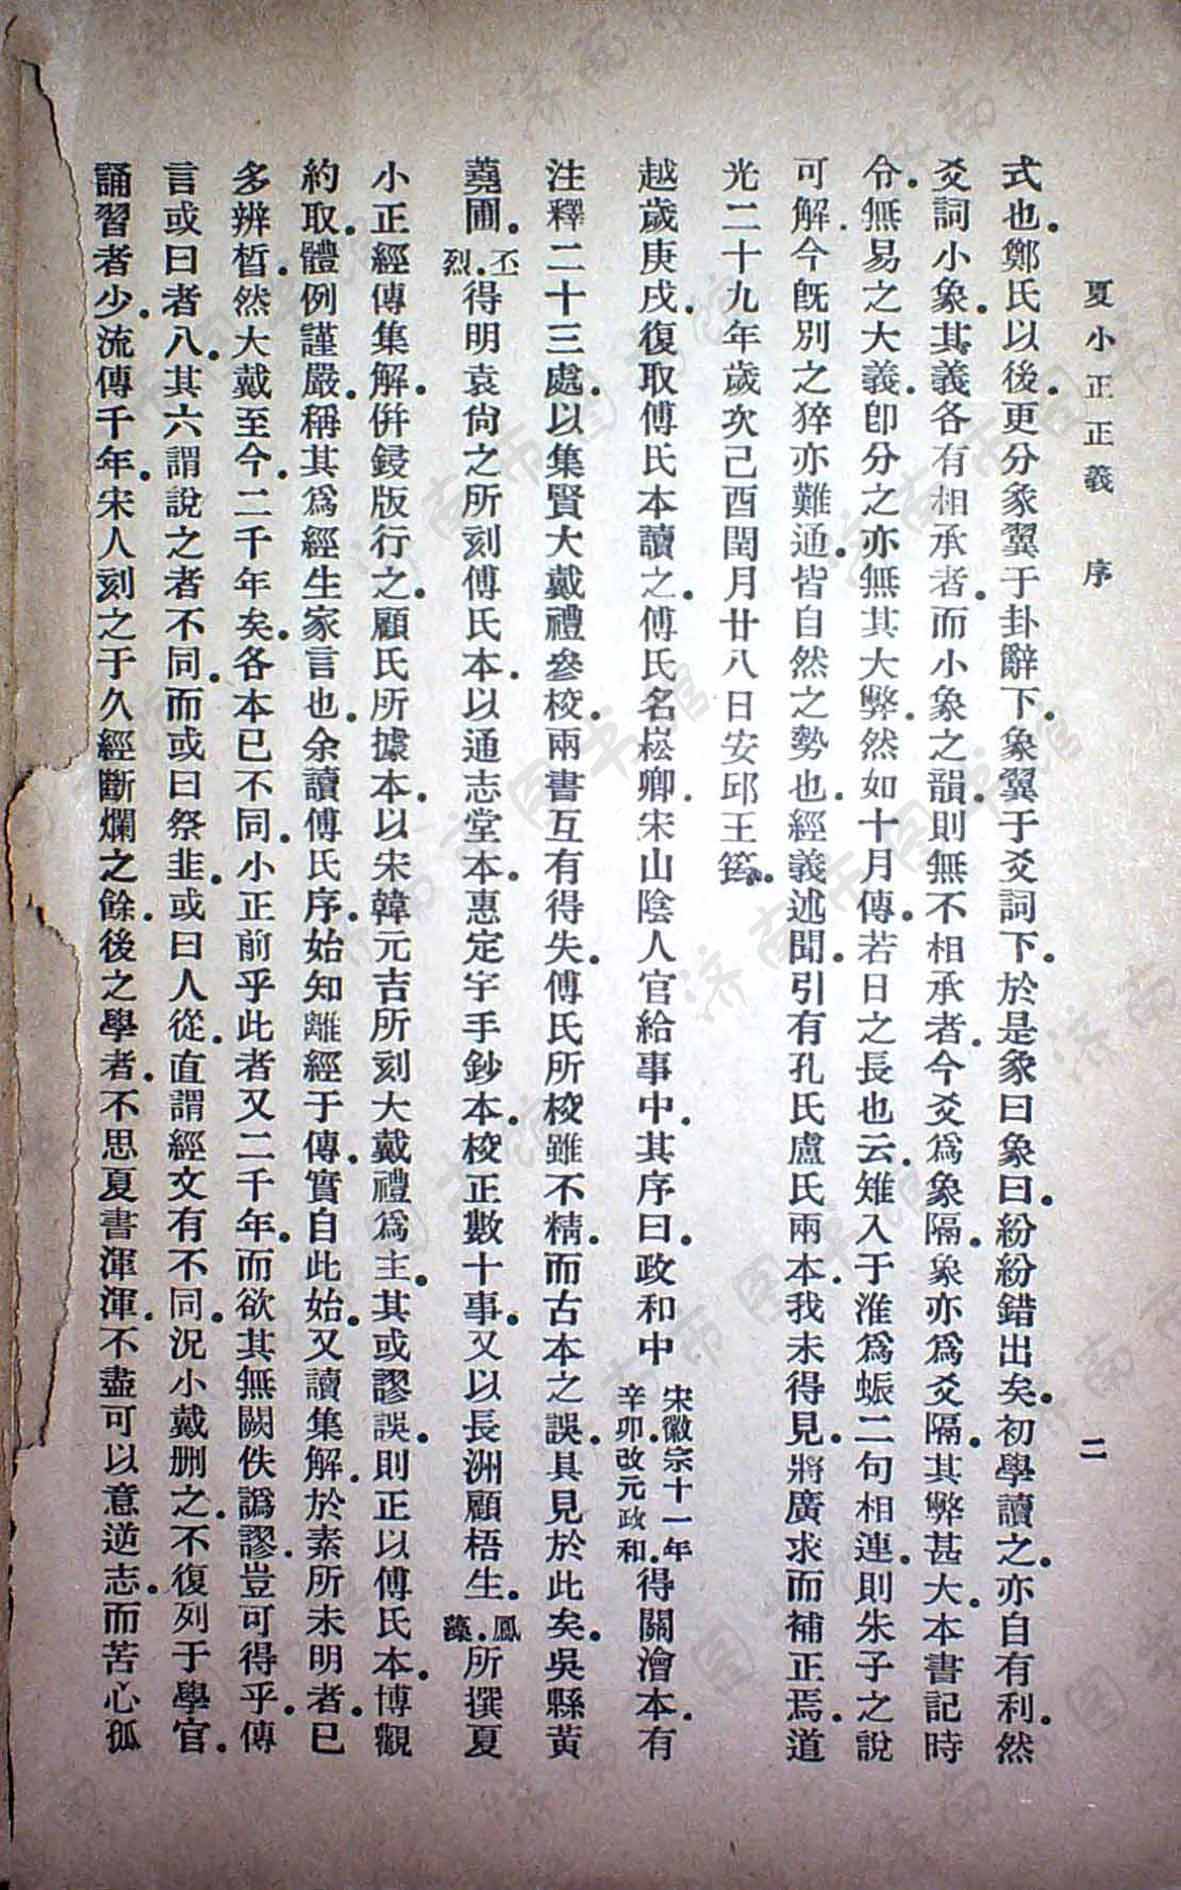 夏小正正義　序　二
式也。鄭氏以後。更分彖翼于卦辭下。象翼于爻詞下。於是彖曰象曰。紛紛錯出矣。初學讀之。亦自有利。然
爻詞小象。其義各有相承者。而小象之韻。則無不相承者。今爻爲象隔。象亦爲爻隔。其弊甚大。本書記時
令。無易之大義。卽分之亦無其大弊。然如十月傳。若日之長也云。雉入于淮爲蜃二句相連。則朱子之說
可解。今旣別之。猝亦難通。皆自然之勢也。經義述聞。引有孔氏盧氏兩本。我未得見。將廣求而補正焉。道
光二十九年歲次己酉閏月廿八日安邱王筠。
越歲庚戌。復取傅氏本讀之。傅氏名崧卿。宋山陰人。官給事中。其序曰。政和中宋徽宗十一年辛卯。改元政和。得關澮本。有
注釋二十三處。以集賢大戴禮參校。兩書互有得失。傅氏所校雖不精。而古本之誤。具見於此矣。吳縣黃
蕘圃。丕烈。得明袁尙之所刻傅氏本。以通志堂本。惠定宇手鈔本。校正數十事。又以長洲顧梧生。鳳藻。所撰夏
小正經傳集解。倂鋟版行之。顧氏所據本。以宋韓元吉所刻大戴禮爲主。其或謬誤。則正以傅氏本。博觀
約取。體例謹嚴。稱其爲經生家言也。余讀傅氏序。始知離經于傳。實自此始。又讀集解。於素所未明者。已
多辨晳。然大戴至今。二千年矣。各本已不同。小正前乎此者又二千年。而欲其無闕佚譌謬。豈可得乎。傳
言或曰者八。其六謂說之者不同。而或曰祭韭。或曰人從。直謂經文有不同。況小戴删之。不復列于學官。
誦習者少。流傳千年。宋人刻之于久經斷爛之餘。後之學者。不思夏書渾渾。不盡可以意逆志。而苦心孤